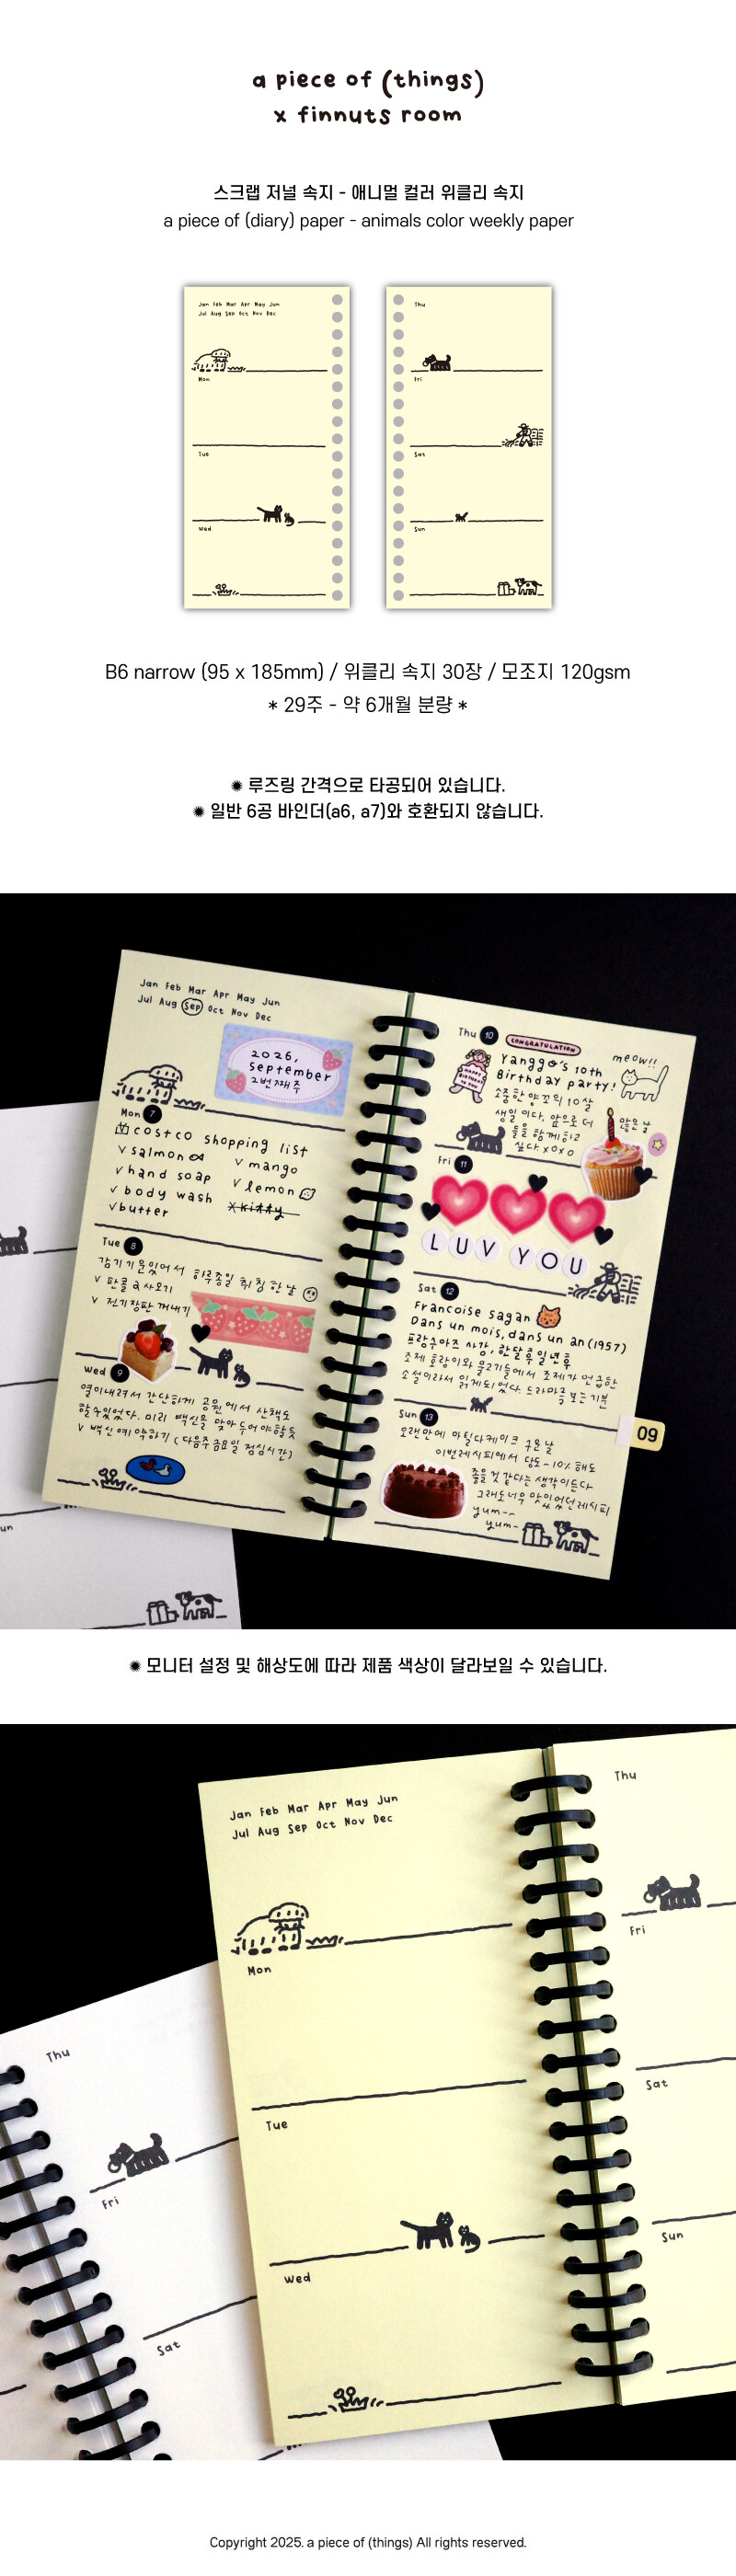 a piece of (things)
x finnuts room
스크랩 저널 속지 - 애니멀 컬러 위클리 속지
a piece of (diary) paper - animals color weekly paper
Jan Feb Mar Apr May Jun
Jul Aug Sep Oct Nov Dec
Mon
Tue
Wed
Thu
Fri
Sat
Sun
B6 narrow (95 x 185mm) / 위클리 속지 30장 / 모조지 120gsm
* 29주 - 약 6개월 분량 *
✹ 루즈링 간격으로 타공되어 있습니다.
✹ 일반 6공 바인더(a6, a7)와 호환되지 않습니다.
Jan Feb Mar Apr May Jun
Jul Aug Sep Oct Nov Dec
2026,
September
2번째 주
Mon 7
costco shopping list
v salmon
v mango
v hand soap
v lemon
v body wash
x kitty
v butter
Tue 8
감기기운있어서 하루종일 취침한 날
v 판콜 a 사오기
v 전기장판 꺼내기
Wed 9
열이내려서 간단하게 공원에서 산책도
할수있었다. 미리 백신을 맞아두어야할듯
v 백신예약하기 (다음주 금요일 점심시간)
Thu 10
CONGRATULATION
HAPPY BIRTHDAY TO YOU
Yanggo's 10th
Birthday party!
meow!!
소중한 양꼬의 10살
생일이다. 앞으로 더
많은 날
들을 함께하고
싶다 x0x0
Fri 11
LUV YOU
Sat 12
Francoise sagan
Dans un mois, dans un an (1957)
프랑수아즈 사강, 한달 후 일년 후
조제 호랑이와 물고기들에서 조제가 언급한
소설이라서 읽게되었다. 드라마를 보는기분
Sun 13
오랜만에 마틸다케이크 구운 날
이번레시피에서 당도 -10% 해도
좋을 것 같다는 생각이든다
그래도너무 맛있었던레시피
yum~~
yum~
09
un
✹ 모니터 설정 및 해상도에 따라 제품 색상이 달라보일 수 있습니다.
Jan Feb Mar Apr May Jun
Jul Aug Sep Oct Nov Dec
Mon
Tue
Wed
Thu
Fri
Sat
Sun
Thu
Fri
Sat
Copyright 2025. a piece of (things) All rights reserved.